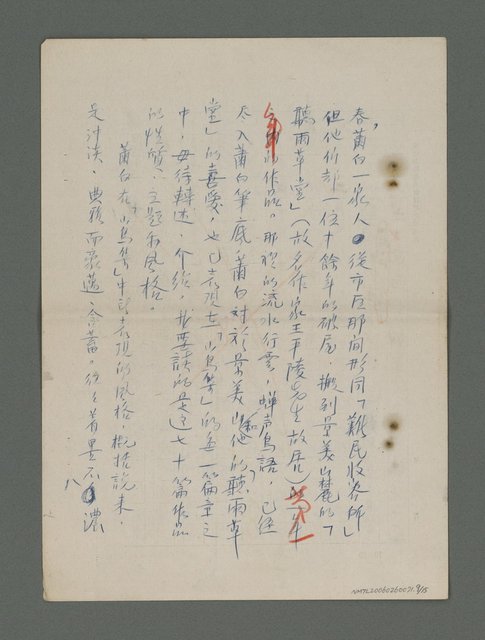 春，莆白一家人，從市區那間形同「難民收容所」
但他們卻一位十餘年的破屋，搬到景美山麓的「
聽雨草堂」（故名作家王平陵先生故居）
作品。那裡的流水行雲，蟬声鳥語，已經
尽入莆白筆底，莆白对於景美山他和的「聽雨草
堂」的喜愛，也已表現在「山鳥集」的每一篇章之
中，毋待轉述、介紹，我要談的是這七十篇作品
的性質、主題和風格。
莆白在「山鳥集」中已表現的風格，概括說来，
是沖淡、典雅而豪邁、含蓄。往々着墨不濃
八
NMTL20060260071, 9/15